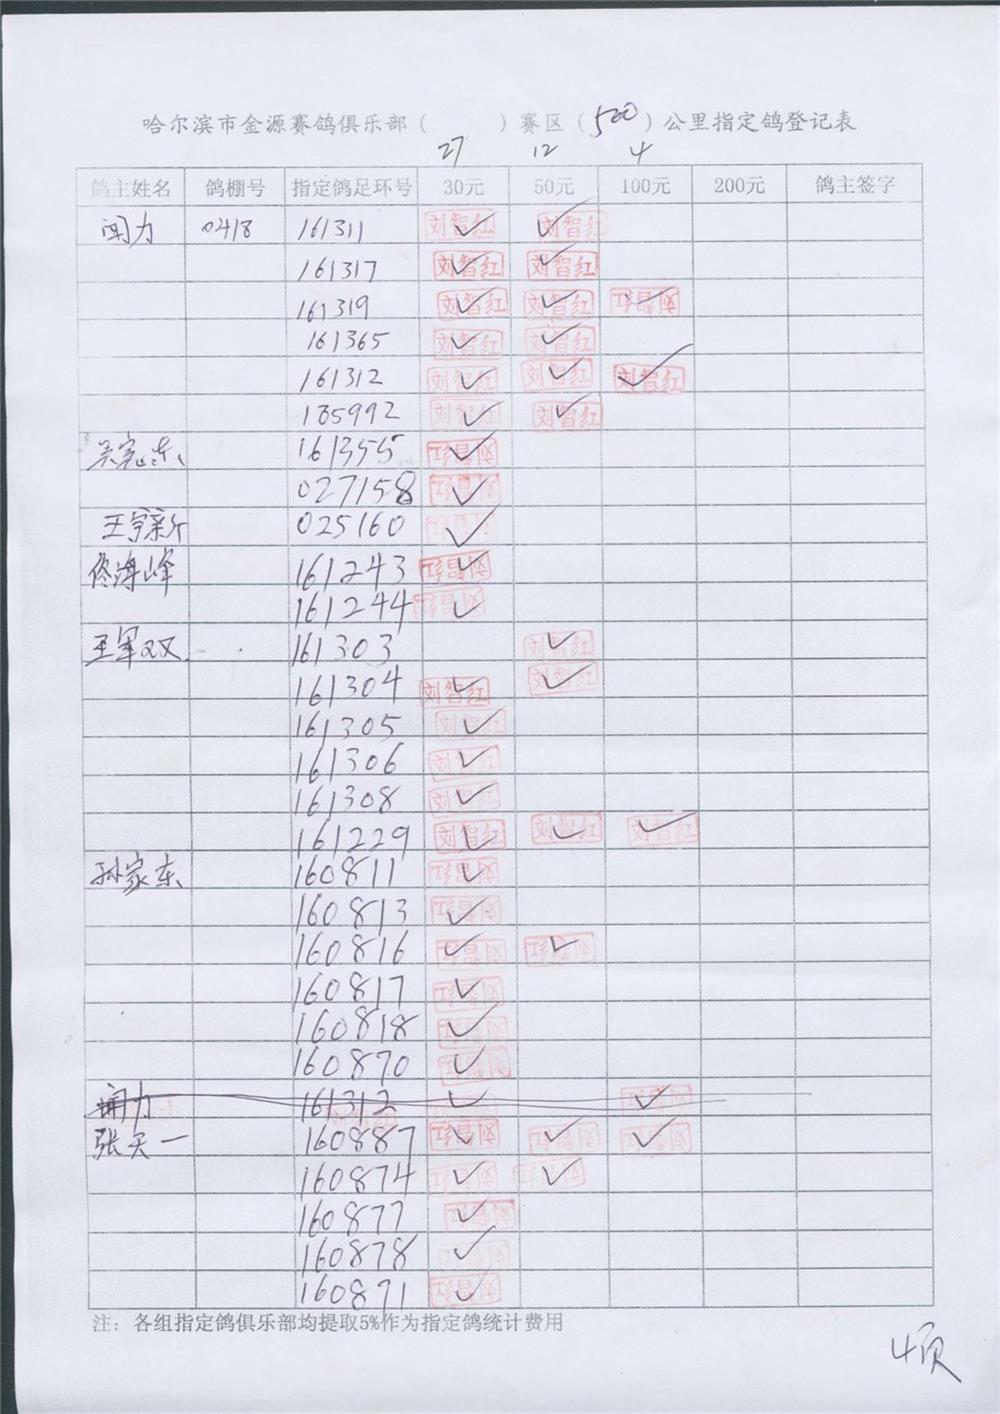 哈尔滨市金源赛鸽俱乐部（ ）赛区（500）公里指定鸽登记表
27 12 4
鸽主姓名 鸽棚号 指定鸽足环号 30元 50元 100元 200元 鸽主签字
闻力 0418 161311 刘智红 ✓ 刘智红 ✓
161317 刘智红 ✓ 刘智红 ✓
161319 刘智红 ✓ 刘智红 ✓ ✓
161365 刘智红 ✓ 刘智红 ✓
161312 刘智红 ✓ 刘智红 ✓ 刘智红 ✓
185992 刘智红 ✓ 刘智红 ✓
东 161355 ✓
027158 ✓
王宇新 025160 ✓
佟海峰 161243 ✓
161244 ✓
王军双 161303 刘智红 ✓
161304 刘智红 ✓ 刘智红 ✓
161305 刘智红 ✓
161306 刘智红 ✓
161308 刘智红 ✓
161229 刘智红 ✓ 刘智红 ✓ 刘智红 ✓
孙家东 160811 ✓
160813 ✓
160816 ✓ ✓
160817 ✓
160818 ✓
160870 ✓
闻力 161312 ✓ ✓
张天一 160887 ✓ ✓ ✓
160874 ✓ ✓
160877 ✓
160878 ✓
160871 ✓
注：各组指定鸽俱乐部均提取5%作为指定鸽统计费用
4页